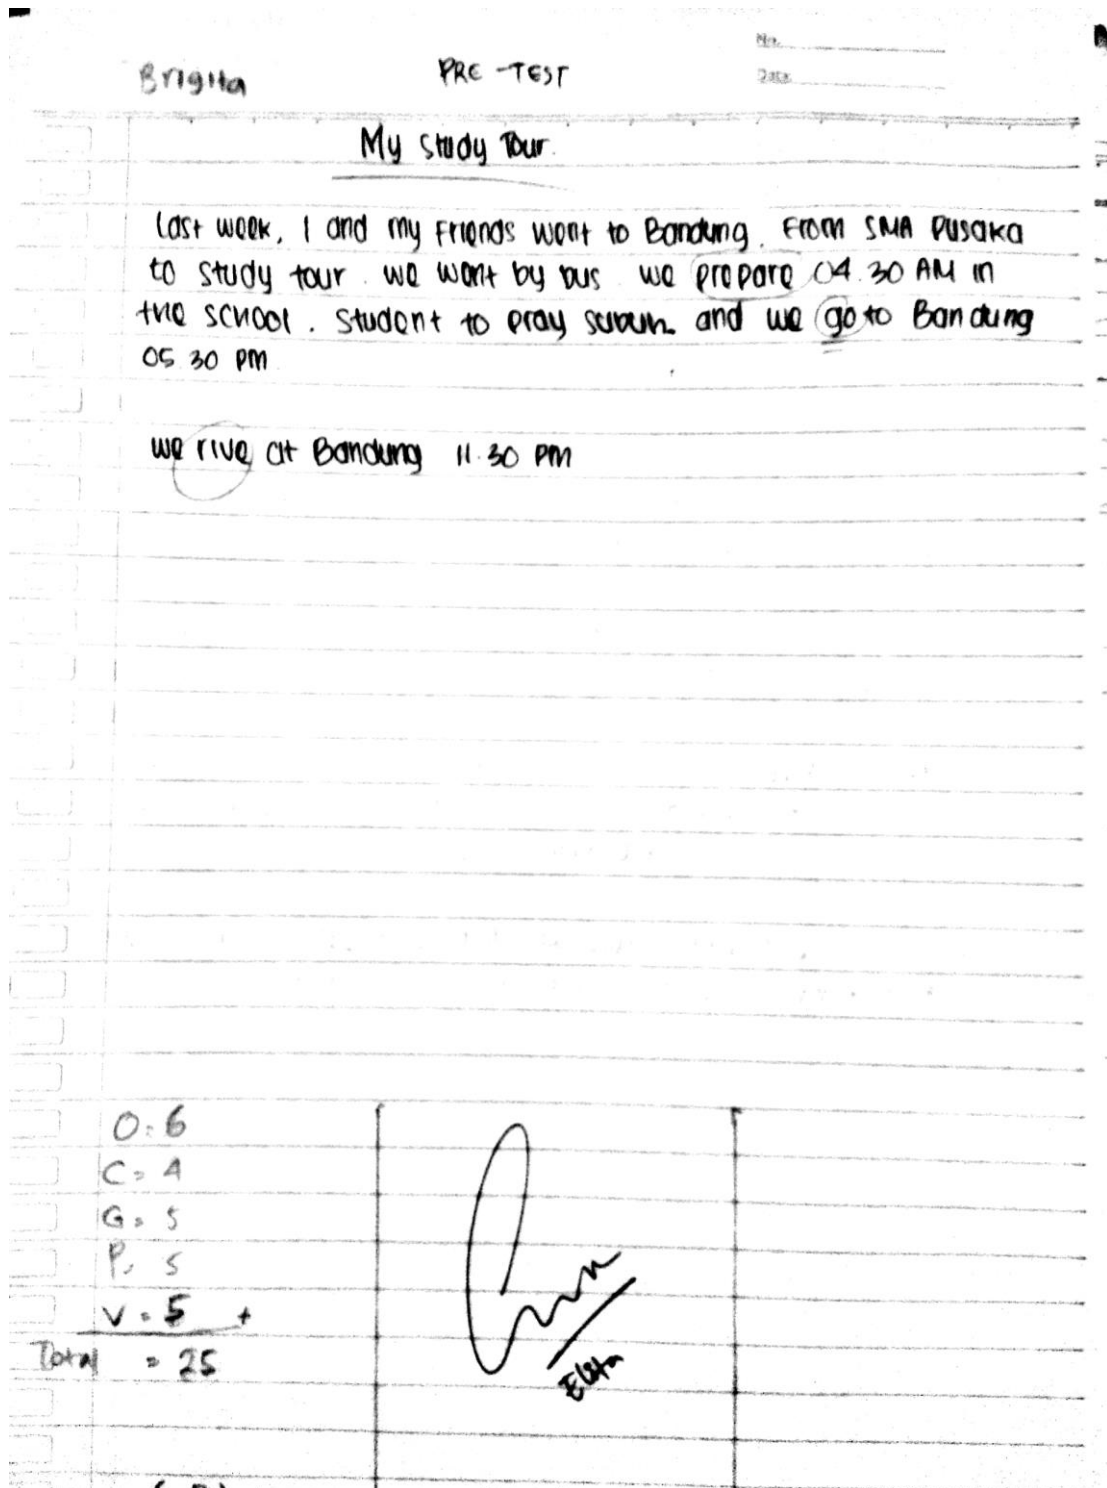 No.
Date
Brigita
PRE-TEST
My Study Tour.
Last week, I and my Friends went to Bandung. From SMA Pusaka
to study tour. we went by bus we prepare 04.30 AM in
the school. Student to pray subuh. and we go to Bandung
05 30 PM
we rive at Bandung 11.30 PM
O: 6
C = 4
G = 5
P = 5
V = 5 +
Total = 25